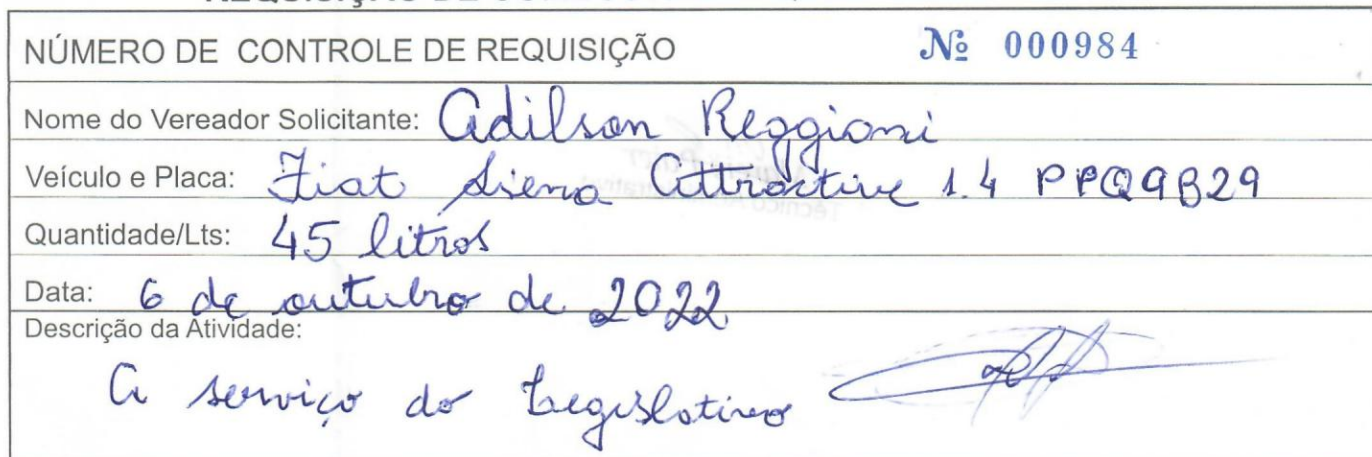 NÚMERO DE CONTROLE DE REQUISIÇÃO Nº 000984
Nome do Vereador Solicitante: Adilson Reggiani
Veículo e Placa: Fiat Siena Attractive 1.4 PPQ9B29
Quantidade/Lts: 45 litros
Data: 6 de outubro de 2022
Descrição da Atividade:
A serviço do Legislativo